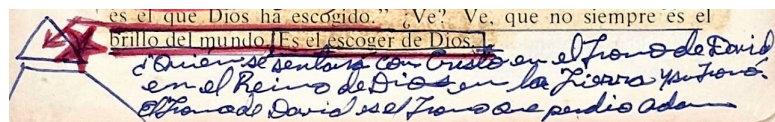 es el que Dios ha escogido." ¿Ve? Ve, que no siempre es el
brillo del mundo. Es el escoger de Dios.
¿Quien se sentara con Cristo en el Trono de David
en el Reino de Dios en la Tierra y su Trono.
El Trono de David es el Trono que perdio Adan